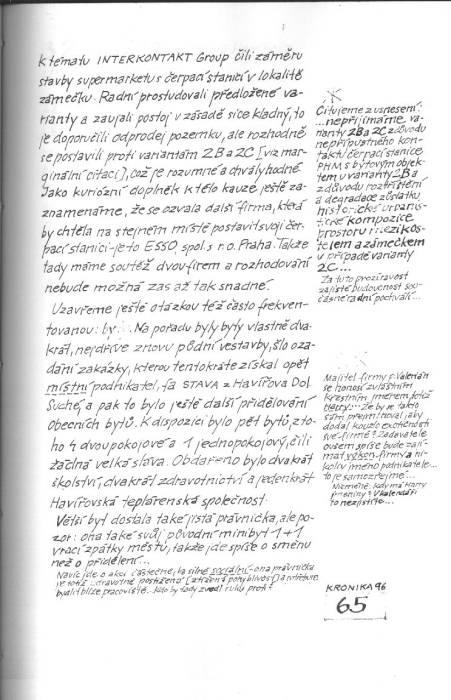 K tématu INTERKONTAKT Group čili záměru
stavby supermarketu s čerpací stanicí v lokalitě
zámečku. Radní prostudovali předložené va-
rianty a zaujali postoj v zásadě sice kladný, to
je doporučili odprodej pozemku, ale rozhodně
se postavili proti variantám 2B a 2C [viz mar-
ginální citaci], což je rozumné a chvályhodné.
Jako kuriózní doplněk k této kauze ještě za-
znamenáme, že se ozvala další firma, která
by chtěla na stejném místě postavit svoji čer-
pací stanici - je to ESSO, spol. s r.o. Praha. Takže
tady máme soutěž dvou firem a rozhodování
nebude možná zas až tak snadné.
Uzavřeme ještě otázkou též často frekven-
tovanou: by... Na pořadu byly byty vlastně dva-
krát, nejdříve znovu půdní vestavby, šlo o za-
dání zakázky, kterou tentokráte získal opět
místní podnikatel, fa STAVA z Havířova Dol.
Suché, a pak to bylo ještě další přidělování
obecních bytů. K dispozici bylo pět bytů, z to-
ho 4 dvoupokojové a 1 jednopokojový, čili
žádná velká sláva. Obdařeno bylo dvakrát
školství, dvakrát zdravotnictví a jedenkrát
Havířovská teplárenská společnost.
Větší byt dostala také jistá právnička, ale po-
zor: ona také svůj původní minibyt 1+1
vrací zpátky městu, takže jde spíše o směnu
než o přidělení...
Navíc jde o akci částečně, ba silně sociální - ona právnička
je totiž zdravotně postižena [ztížená pohyblivost] a
bydlit blíže pracoviště... kdo by tady zvedl ruku proti?
Citujeme z usnesení:
...nepřijímáme va-
rianty 2B a 2C z důvodu
nepřípustného kon-
taktu čerpací stanice
PHM s bytovým objek-
tem u varianty 2B a
z důvodu roztříštění
a degradace zůstatku
historické urbanis-
tické kompozice
prostoru mezi kos-
telem a zámečkem
v případě varianty
2C...
Za tuto prozíravost
zajisté budoucnost sou-
časné radní pochválí...
Majitel firmy p. Valerián
se honosí zvláštním
křestním jménem, totiž
Že by se takto
sám přejmenoval, aby
dodal kouzlo exotičnosti
své firmě? Zadavatele
ovšem spíše bude zají-
mat výkon firmy a ni-
koliv jméno podnikatele...
to je samozřejmé...
Nicméně, kdy má Harry
jmeniny? V kalendáři
to nezjistíte...
KRONIKA 96
65